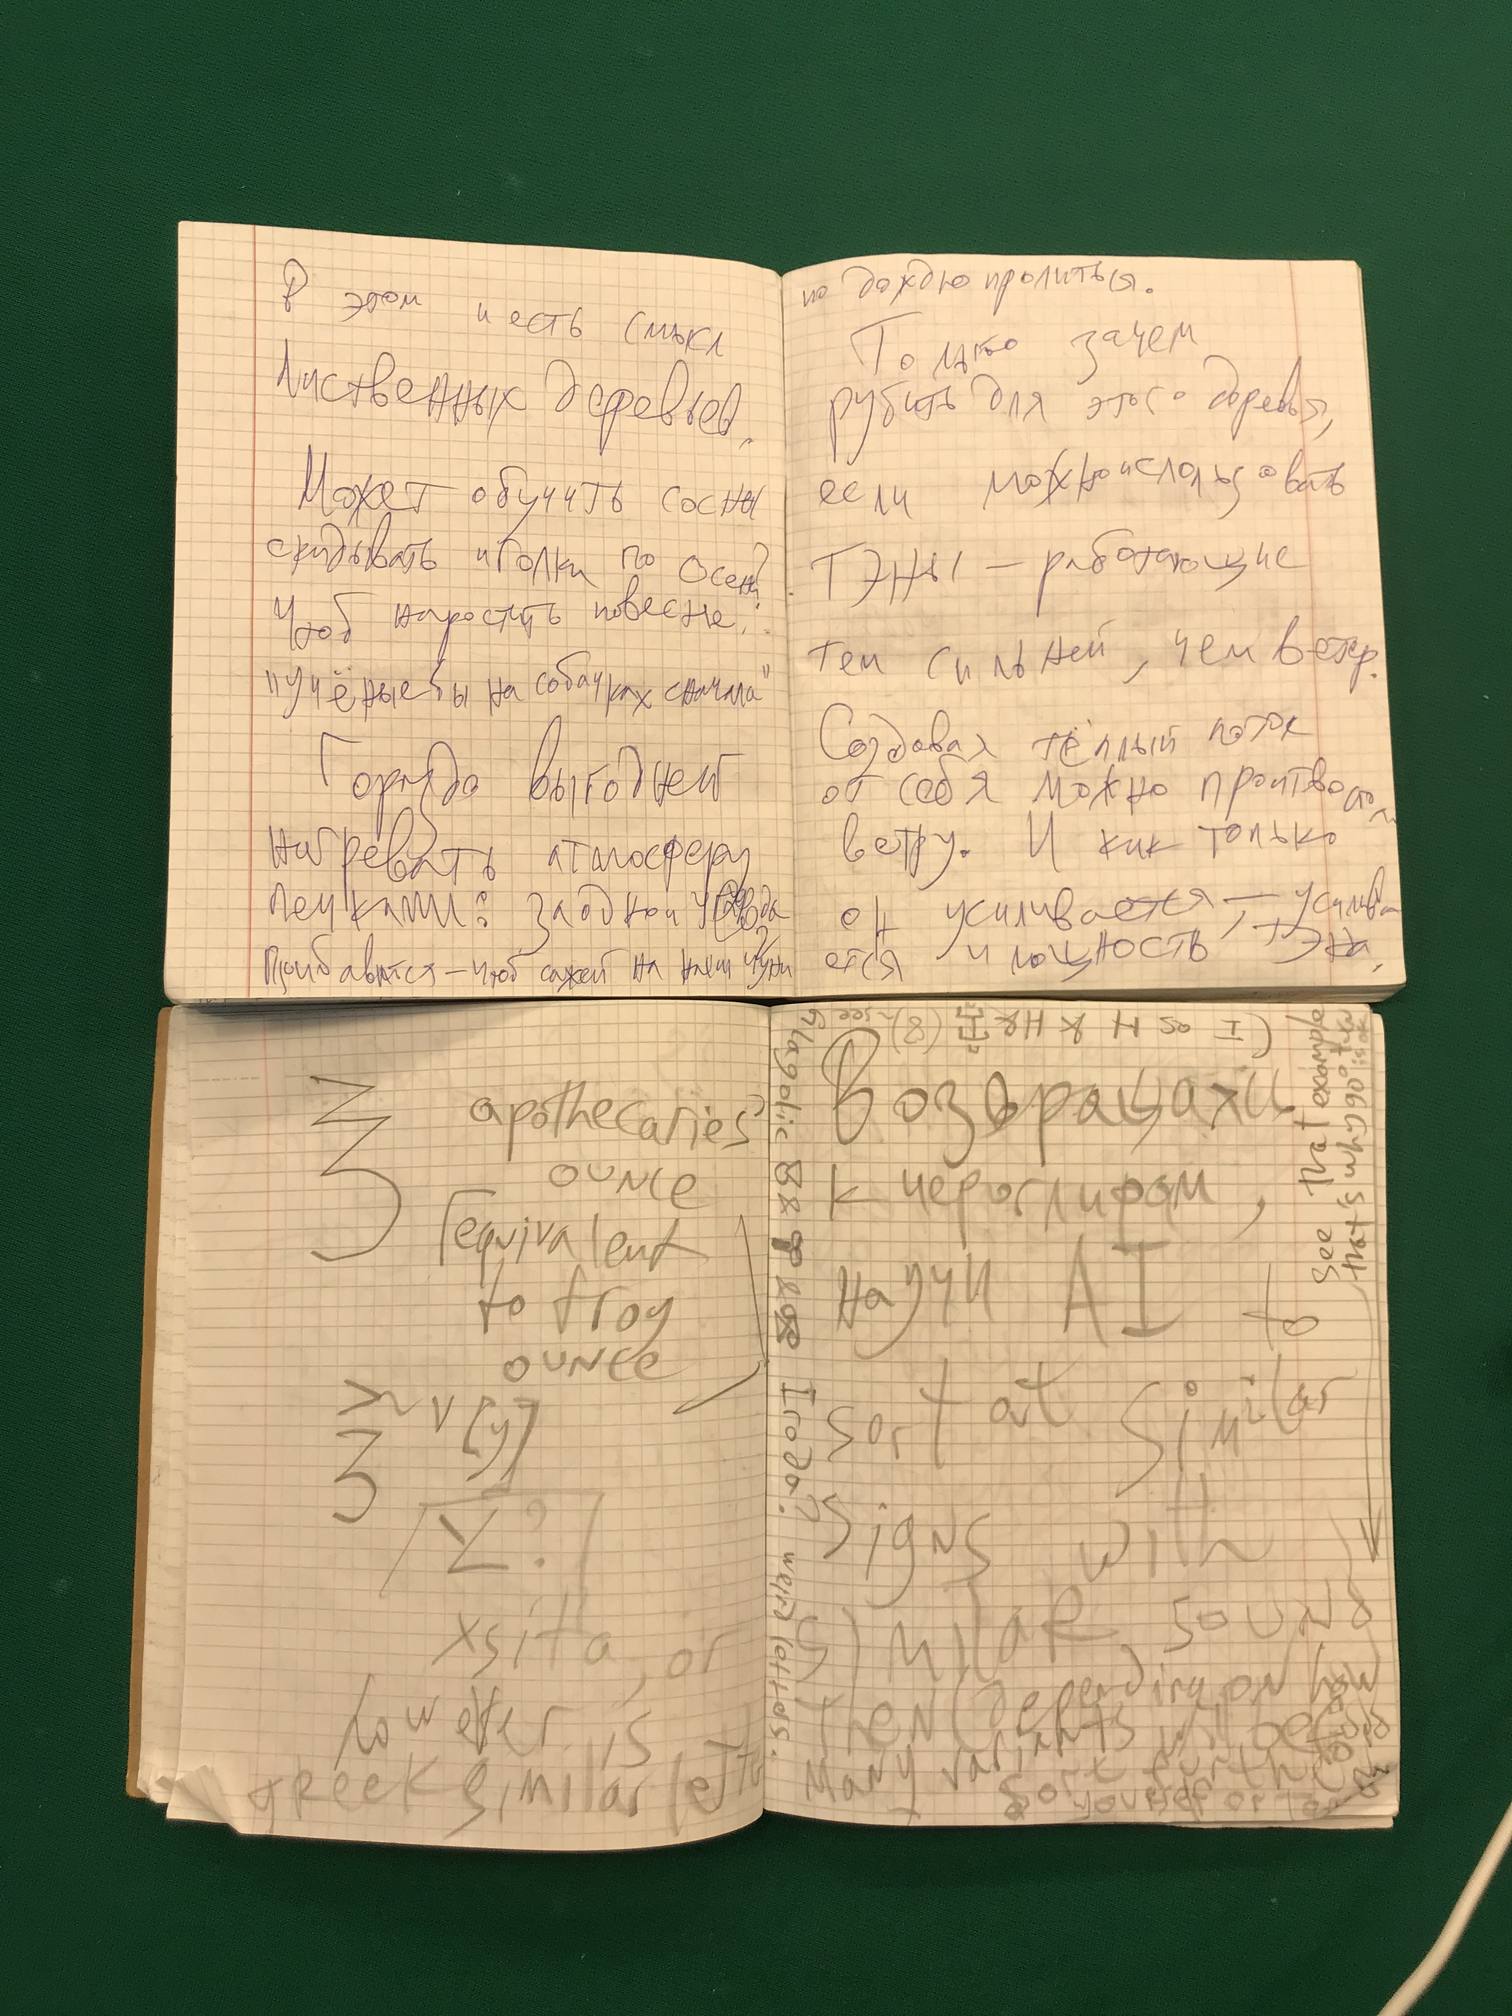 В этом и есть смысл
лиственных деревьев.
Может обучить сосны
скидывать иголки по осени?
Чтоб наростить повесне.
"учёные бы на собачках сначала"
Гораздо выгодней
нагревать атмосферу
печками: заодной углерода
прибавится — чтоб сажей на
по дождю пролиться.
Только зачем
рубить для этого деревья,
если можно использовать
ТЭНы — работающие
тем сильней, чем ветер.
Создавая тёплый поток
от себя можно противостоять
ветру. И как только
он усиливается, — усилива
ется и мощность тэна,
apothecaries'
ounce
equivalent
to troy
ounce
≥~V [y]
3
Σ?
xsita, or
however is
greek similar letter
Glagolic
Iroda? weird lotters.
(8) ~see
Возвращаяхи
к иероглифам,
научи AI to
sort at similar
signs with
similar sound
then (depending on how
many variants will be found
sort further
see that example
that's why 90° turn
is ok